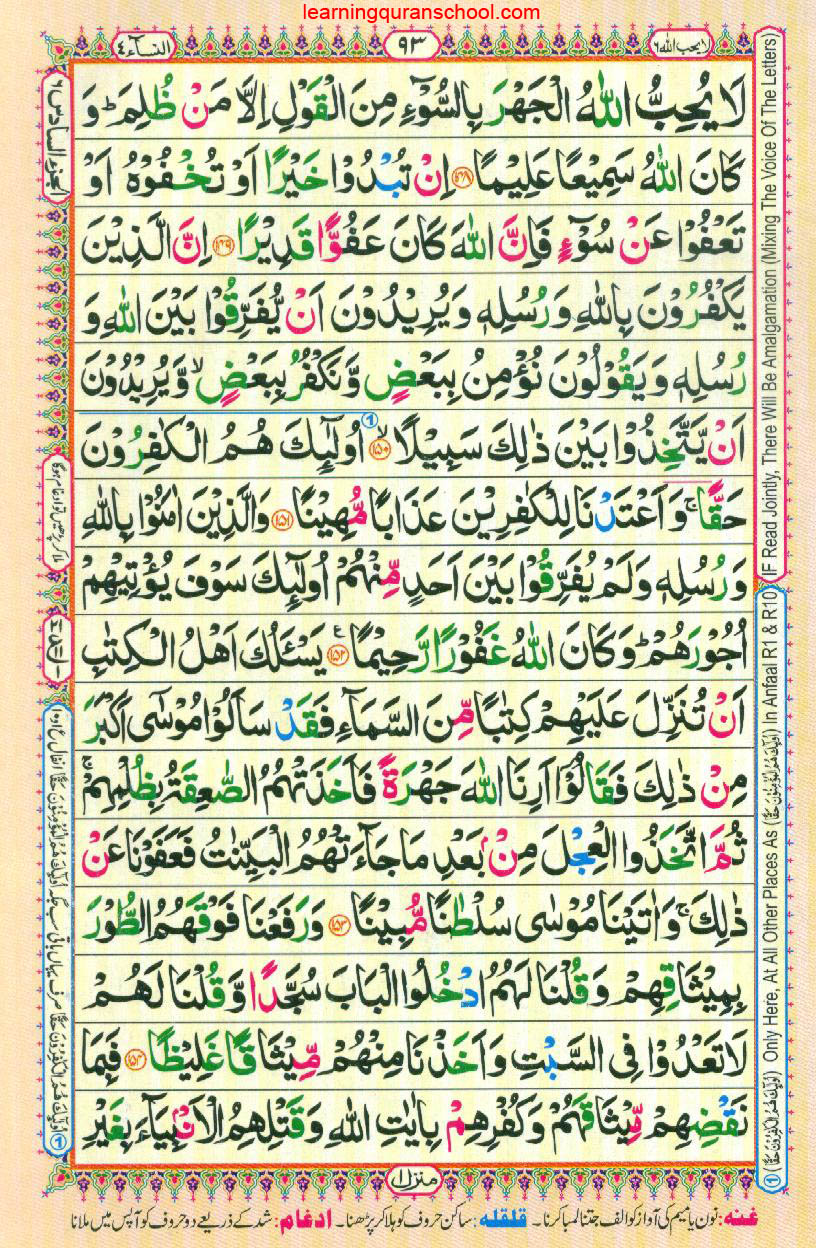 learningquranschool.com
لا يحب الله ٦
٩٣
النسآء ٤
لَا يُحِبُّ اللّٰهُ الْجَهْرَ بِالسُّوْٓءِ مِنَ الْقَوْلِ اِلَّا مَنْ ظُلِمَ ؕ وَ
كَانَ اللّٰهُ سَمِيْعًا عَلِيْمًا ﴿۱۴۸﴾ اِنْ تُبْدُوْا خَيْرًا اَوْ تُخْفُوْهُ اَوْ
تَعْفُوْا عَنْ سُوْٓءٍ فَاِنَّ اللّٰهَ كَانَ عَفُوًّا قَدِيْرًا ﴿۱۴۹﴾ اِنَّ الَّذِيْنَ
يَكْفُرُوْنَ بِاللّٰهِ وَ رُسُلِهٖ وَ يُرِيْدُوْنَ اَنْ يُّفَرِّقُوْا بَيْنَ اللّٰهِ وَ
رُسُلِهٖ وَ يَقُوْلُوْنَ نُؤْمِنُ بِبَعْضٍ وَّ نَكْفُرُ بِبَعْضٍ ۙ وَّ يُرِيْدُوْنَ
اَنْ يَّتَّخِذُوْا بَيْنَ ذٰلِكَ سَبِيْلًا ﴿۱۵۰﴾ ۙ اُولٰٓئِكَ هُمُ الْكٰفِرُوْنَ
حَقًّا ۚ وَ اَعْتَدْنَا لِلْكٰفِرِيْنَ عَذَابًا مُّهِيْنًا ﴿۱۵۱﴾ وَ الَّذِيْنَ اٰمَنُوْا بِاللّٰهِ
وَ رُسُلِهٖ وَ لَمْ يُفَرِّقُوْا بَيْنَ اَحَدٍ مِّنْهُمْ اُولٰٓئِكَ سَوْفَ يُؤْتِيْهِمْ
اُجُوْرَهُمْ ؕ وَ كَانَ اللّٰهُ غَفُوْرًا رَّحِيْمًا ﴿۱۵۲﴾ ع يَسْـَٔلُكَ اَهْلُ الْكِتٰبِ
اَنْ تُنَزِّلَ عَلَيْهِمْ كِتٰبًا مِّنَ السَّمَآءِ فَقَدْ سَاَلُوْا مُوْسٰٓى اَكْبَرَ
مِنْ ذٰلِكَ فَقَالُوْٓا اَرِنَا اللّٰهَ جَهْرَةً فَاَخَذَتْهُمُ الصّٰعِقَةُ بِظُلْمِهِمْ ۚ
ثُمَّ اتَّخَذُوا الْعِجْلَ مِنْۢ بَعْدِ مَا جَآءَتْهُمُ الْبَيِّنٰتُ فَعَفَوْنَا عَنْ
ذٰلِكَ ۚ وَ اٰتَيْنَا مُوْسٰى سُلْطٰنًا مُّبِيْنًا ﴿۱۵۳﴾ وَ رَفَعْنَا فَوْقَهُمُ الطُّوْرَ
بِمِيْثَاقِهِمْ وَ قُلْنَا لَهُمُ ادْخُلُوا الْبَابَ سُجَّدًا وَّ قُلْنَا لَهُمْ
لَا تَعْدُوْا فِى السَّبْتِ وَ اَخَذْنَا مِنْهُمْ مِّيْثَاقًا غَلِيْظًا ﴿۱۵۴﴾ فَبِمَا
نَقْضِهِمْ مِّيْثَاقَهُمْ وَ كُفْرِهِمْ بِاٰيٰتِ اللّٰهِ وَ قَتْلِهِمُ الْاَنْۢبِيَآءَ بِغَيْرِ
منزل ١
غنه: نون یا میم کی آواز کو الف جتنا لمبا کرنا۔ قلقله: ساکن حروف کو ہلا کر پڑھنا۔ ادغام: شد کے ذریعے دو حروف کو آپس میں ملانا
الجزء السادس ٦
(IF Read Jointly, There Will Be Amalgamation (Mixing The Voice Of The Letters)
① (اُولٰٓئِكَ هُمُ الْكٰفِرُوْنَ حَقًّا) Only Here, At All Other Places As (اُولٰٓئِكَ هُمُ الْمُؤْمِنُوْنَ حَقًّا) In Anfaal R1 & R10